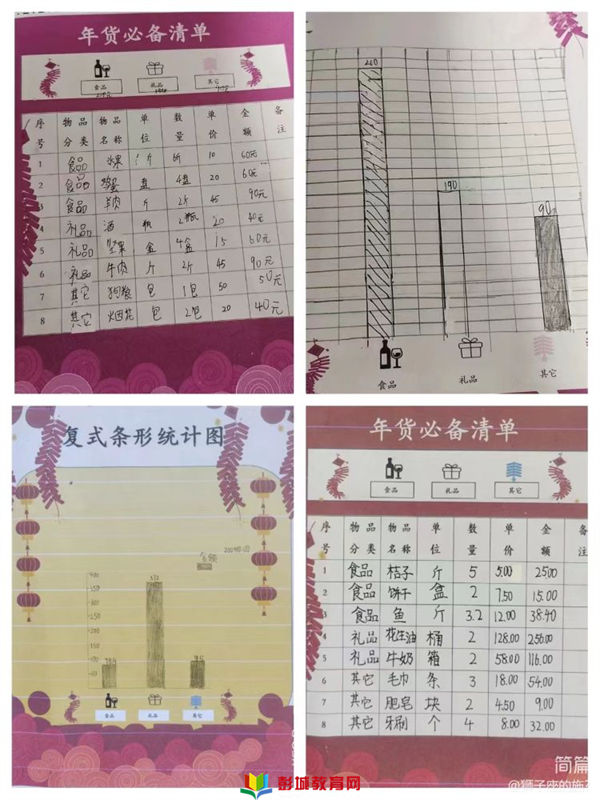 年货必备清单
食品 礼品 其它
序号 物品分类 物品名称 单位 数量 单价 金额 备注
1 食品 水果 斤 6斤 10 60元
2 食品 鸡蛋 盘 4盘 20
3 食品 羊肉 斤 2斤 45 90元
4 礼品 酒 瓶 2瓶 20 40元
5 礼品 坚果 盒 4盒 15 60元
6 礼品 牛肉 斤 2斤 45 90元
7 其它 狗粮 包 1包 50 50元
8 其它 烟花 包 2包 20 40元
190
90
食品 礼品 其它
复式条形统计图
金额
食品 礼品 其它
年货必备清单
食品 礼品 其它
序号 物品分类 物品名称 单位 数量 单价 金额 备注
1 食品 桔子 斤 5 5.00 25.00
2 食品 饼干 盒 2 7.50 15.00
3 食品 鱼 斤 3.2 12.00 38.40
4 礼品 花生油 桶 2 128.00 256.00
5 礼品 牛奶 箱 2 58.00 116.00
6 其它 毛巾 条 3 18.00 54.00
7 其它 肥皂 块 2 4.50 9.00
8 其它 牙刷 个 4 8.00 32.00
简篇
@狮子座的施
彭城教育网